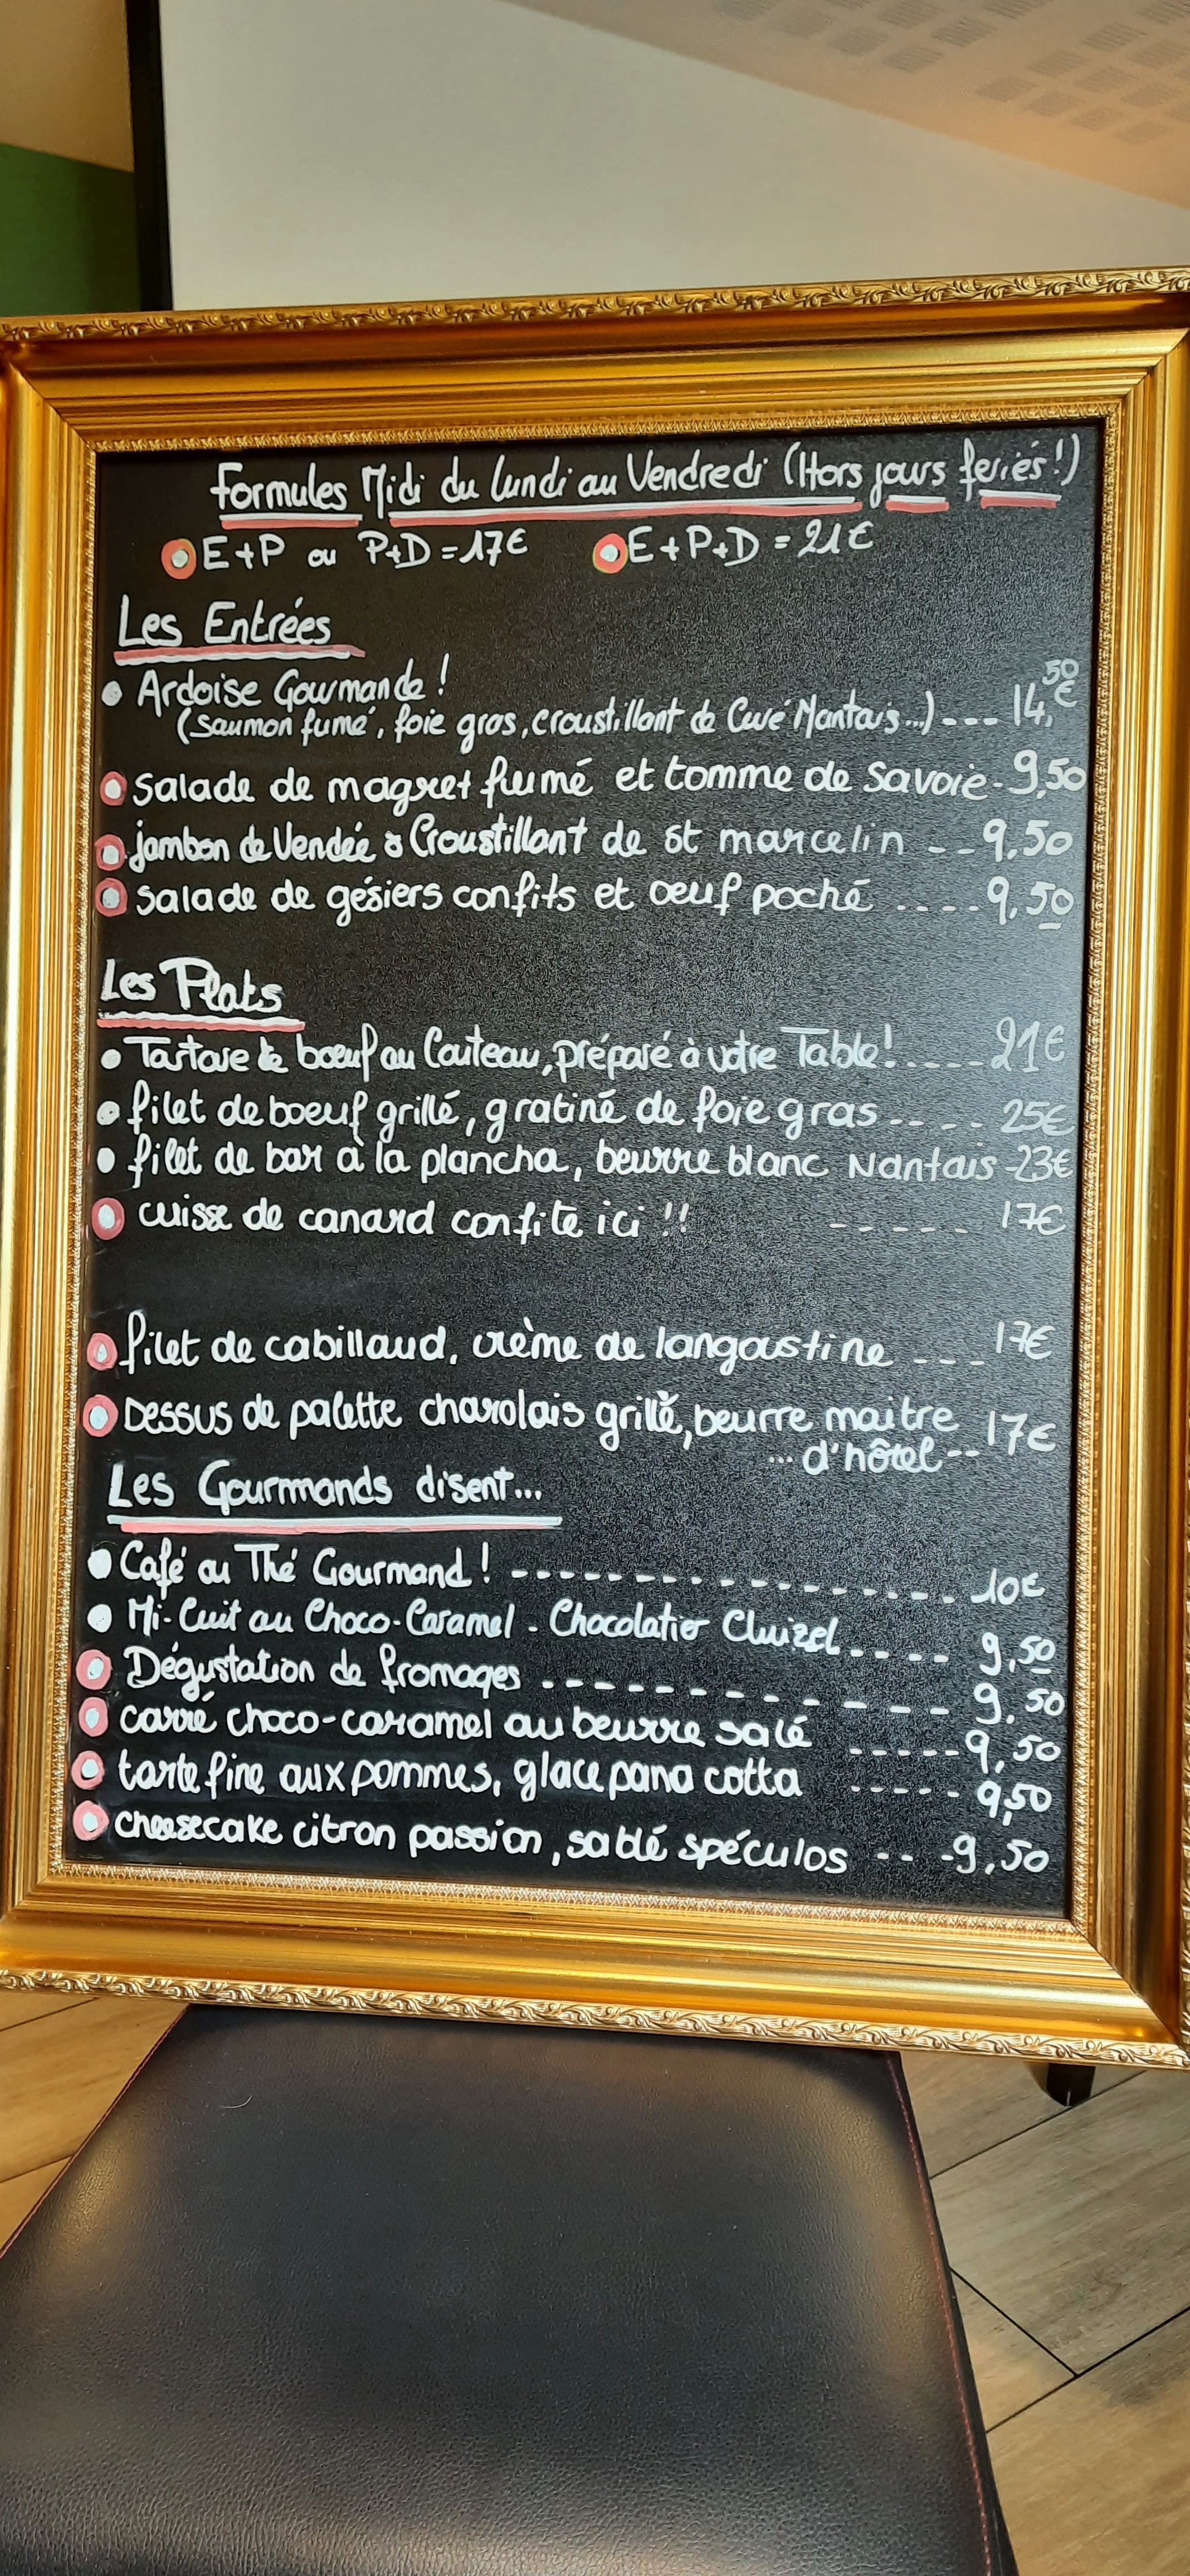 Formules Midi du lundi au Vendredi (Hors jours feriés!)
E+P ou P+D = 17€ E+P+D = 21€
Les Entrées
Ardoise Gourmande!
(Saumon fumé, foie gras, croustillant de Curé Nantais...) --- 14,50€
salade de magret fumé et tomme de Savoie - 9,50
jambon de Vendée & Croustillant de st marcelin -- 9.50
salade de gésiers confits et oeuf poché .... 9,50
Les Plats
Tartare de bœuf au Couteau, préparé à votre Table! .... 21€
filet de boeuf grillé, gratiné de foie gras .... 25€
filet de bar à la plancha, beurre blanc Nantais - 23€
cuisse de canard confite ici !! ----- 17€
filet de cabillaud, crème de langoustine --- 17€
Dessus de palette charolais grillé, beurre maitre 17€
... d'hôtel --
Les Gourmands disent...
Café ou Thé Gourmand! ---------------- 10€
Mi-Cuit au Choco-Caramel - Chocolatier Cluizel ----- 9,50
Dégustation de fromages ------------- 9,50
carré choco-caramel au beurre salé ----- 9,50
tarte fine aux pommes, glace pana cotta ----- 9,50
cheesecake citron passion, sablé spéculos --- 9,50